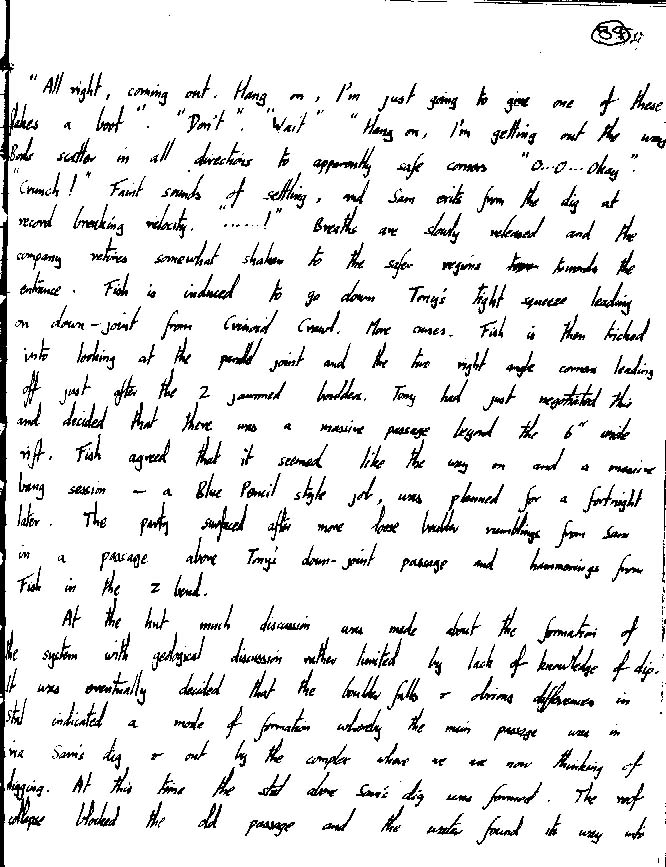 89
"All right, coming out. Hang on, I'm just going to give one of these
flakes a boot". "Don't". "Wait" "Hang on, I'm getting out the way
Bods scatter in all directions to apparently safe corners "O...O...Okay".
"Crunch!" Faint sounds of settling, and Sam exits from the dig at
record breaking velocity. "......!" Breaths are slowly released and the
company retires somewhat shaken to the safer regions towards the
entrance. Fish is induced to go down Tony's tight squeeze leading
on down-joint from Crinoid Crawl. More curses. Fish is then tricked
into looking at the parallel joint and the two right angle corners leading
off just after the 2 jammed boulders. Tony had just negotiated this
and decided that there was a massive passage beyond the 6" wide
rift. Fish agreed that it seemed like the way on and a massive
bang session - a Blue Pencil style job, was planned for a fortnight
later. The party surfaced after more loose boulder rumblings from Sam
in a passage above Tony's down-joint passage and hammerings from
Fish in the Z bend.
At the hut much discussion was made about the formation of
the system with geological discussion rather limited by lack of knowledge of dip.
It was eventually decided that the boulder falls & obvious differences in
stal indicated a mode of formation whereby the main passage was in
via Sam's dig & out by the complex where we are now thinking of
digging. At this time the stal above Sam's dig was formed. The roof
collapse blocked the old passage and the water found its way into